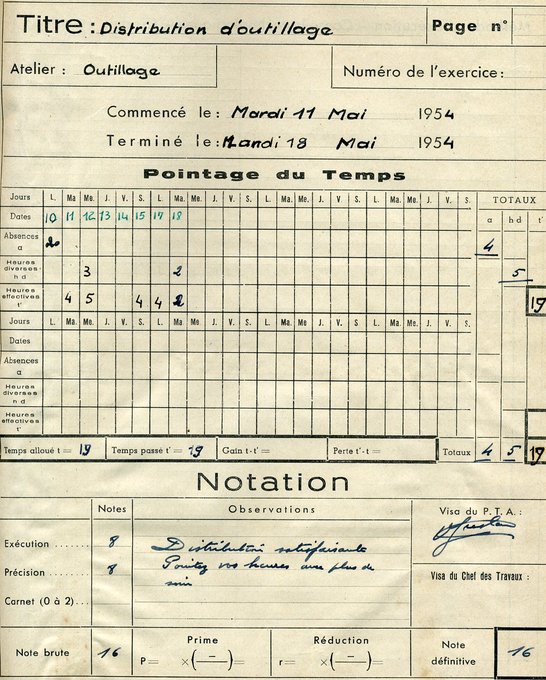 Titre : Distribution d'outillage
Page n°
Atelier : Outillage
Numéro de l'exercice :
Commencé le : Mardi 11 Mai 1954
Terminé le : Mardi 18 Mai 1954
Pointage du Temps
Jours L. Ma Me. J. V. S. L. Ma. Me. J. V. S. L. Ma. Me. J. V. S. L. Ma. Me. J. V. S. TOTAUX
Dates 10 11 12 13 14 15 17 18 a h d t'
Absences a 4
Heures diverses h d 3 2 5
Heures effectives t' 4 5 4 4 2 19
Jours L. Ma. Me. J. V. S. L. Ma. Me. J. V. S. L. Ma. Me. J. V. S. L. Ma. Me. J. V. S.
Dates
Absences a
Heures diverses h d
Heures effectives t'
Temps alloué t = 19 Temps passé t' = 19 Gain t-t' = Perte t'-t = Totaux 4 5 19
Notation
Notes Observations Visa du P.T.A. :
Exécution ....... 8 Distribution satisfaisante
Précision ....... 8 Pointez vos heures avec plus de
soin
Visa du Chef des Travaux :
Carnet (0 à 2)...
Note brute 16 Prime P= ×(—)= Réduction r= ×(—)= Note définitive 16